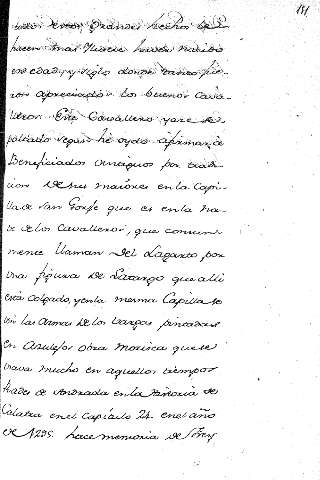 151
hacen mas
en edad, y siglo donde tanto fue-
ron apreciados los buenos Cava-
lleros. Este Cavallero yace se-
pultado segun hè oydo afirmar à
Beneficiados antiguos por tradi-
cion de sus maiores en la Capi-
lla de San Gorge que es en la Na-
ve de los Cavalleros, que comun
mente llaman del Lagarto por
una figura de Lagarto que alli
està colgado, y en la mesma Capilla se
ven las armas de los Vargas pintadas
en Azulejos obra morisca que se
usava mucho en aquellos tiempos
Rades de Andrada en la Historia de
Calatra en el Capitulo 24. en el año
de 1295. hace memoria de Frey